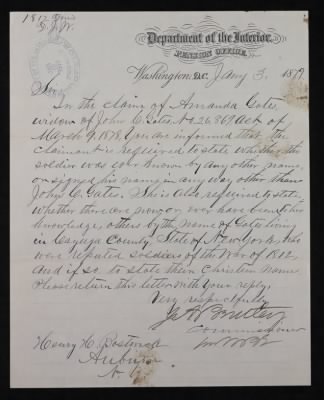 1812 
Department of the Interior,
PENSION OFFICE,
Washington, D.C. Jany 3, 1879
Sir,
In the claim of Amanda Gates,
widow of John C. Gates, No 26,869 Act of
March 9, 1878, You are informed that the
claimant is required to state whether the
soldier was ever known by any other name,
or signed his name in any way other than
John C. Gates. She is also required to state,
whether there are now or ever have been to her
knowledge, others by the name of Gates living
in Cayuga County, State of New York, who
were reputed soldiers of the War of 1812,
And if so, to state their Christian names.
Please return this letter with your reply.
Very respectfully
J. A. Bentley
Commissioner
Henry H. Bostwick
Auburn
N.Y.